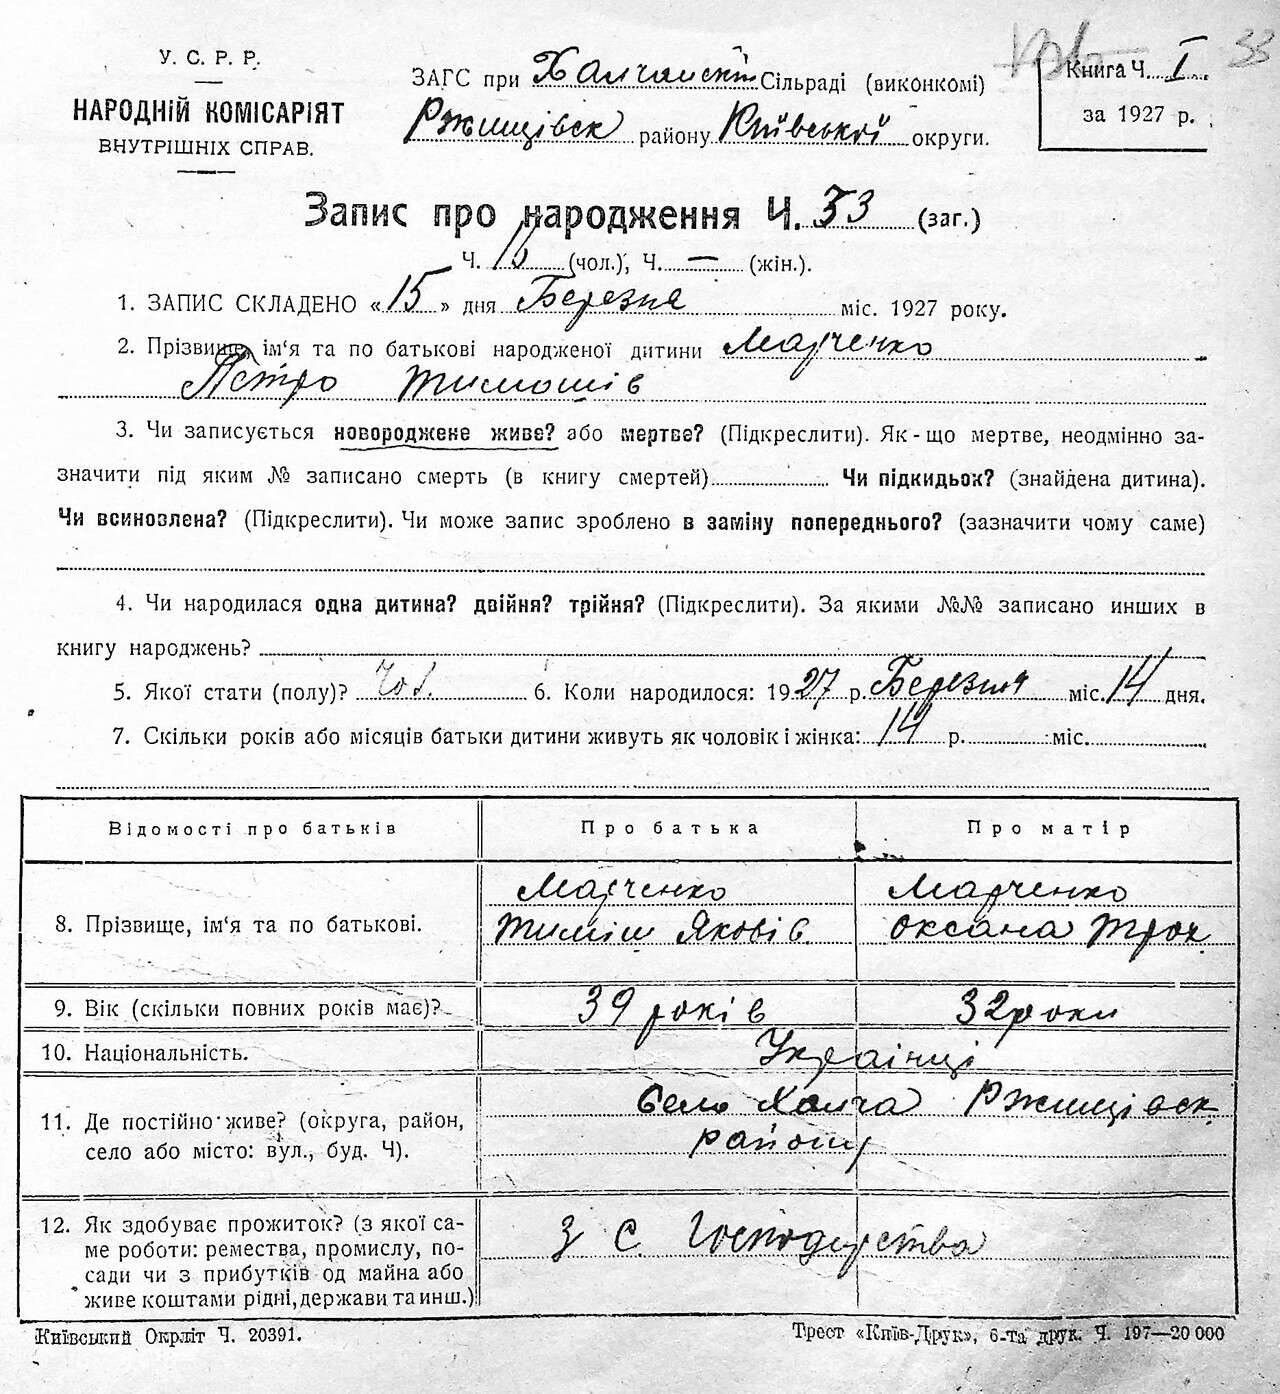 У. С. Р. Р.
НАРОДНІЙ КОМІСАРІЯТ
ВНУТРІШНІХ СПРАВ.
ЗАГС при Халчанскій Сільраді (виконкомі)
Ржищівск району Київської округи.
Книга Ч. I 33
за 1927 р.
Запис про народження Ч. 33 (заг.)
Ч. (чол.), Ч. — (жін.).
1. ЗАПИС СКЛАДЕНО «15» дня Березня міс. 1927 року.
2. Прізвище, ім‘я та по батькові народженої дитини Марченко
Петро Тимошів
3. Чи записується новороджене живе? або мертве? (Підкреслити). Як-що мертве, неодмінно за-
значити під яким № записано смерть (в книгу смертей) Чи підкидьок? (знайдена дитина).
Чи всиновлена? (Підкреслити). Чи може запис зроблено в заміну попереднього? (зазначити чому саме)
4. Чи народилася одна дитина? двійня? трійня? (Підкреслити). За якими №№ записано инших в
книгу народжень?
5. Якої стати (полу)? Чол. 6. Коли народилося: 1927 р. Березня міс. 14 дня.
7. Скільки років або місяців батьки дитини живуть як чоловік і жінка: 14 р. міс.
Відомості про батьків Про батька Про матір
Марченко Марченко
8. Прізвище, ім‘я та по батькові. Тиміш Яковів Оксана Трох
9. Вік (скільки повних років має)? 39 років 32 роки
10. Національність. Українці
11. Де постійно живе? (округа, район, Село Халча Ржищівск
село або місто: вул., буд. Ч). району
12. Як здобуває прожиток? (з якої са- з с. Господарства
ме роботи: ремества, промислу, по-
сади чи з прибутків од майна або
живе коштами рідні, держави та инш.)
Київський Окрліт Ч. 20391.
Трест «Київ-Друк», 6-та друк. Ч. 197—20 000